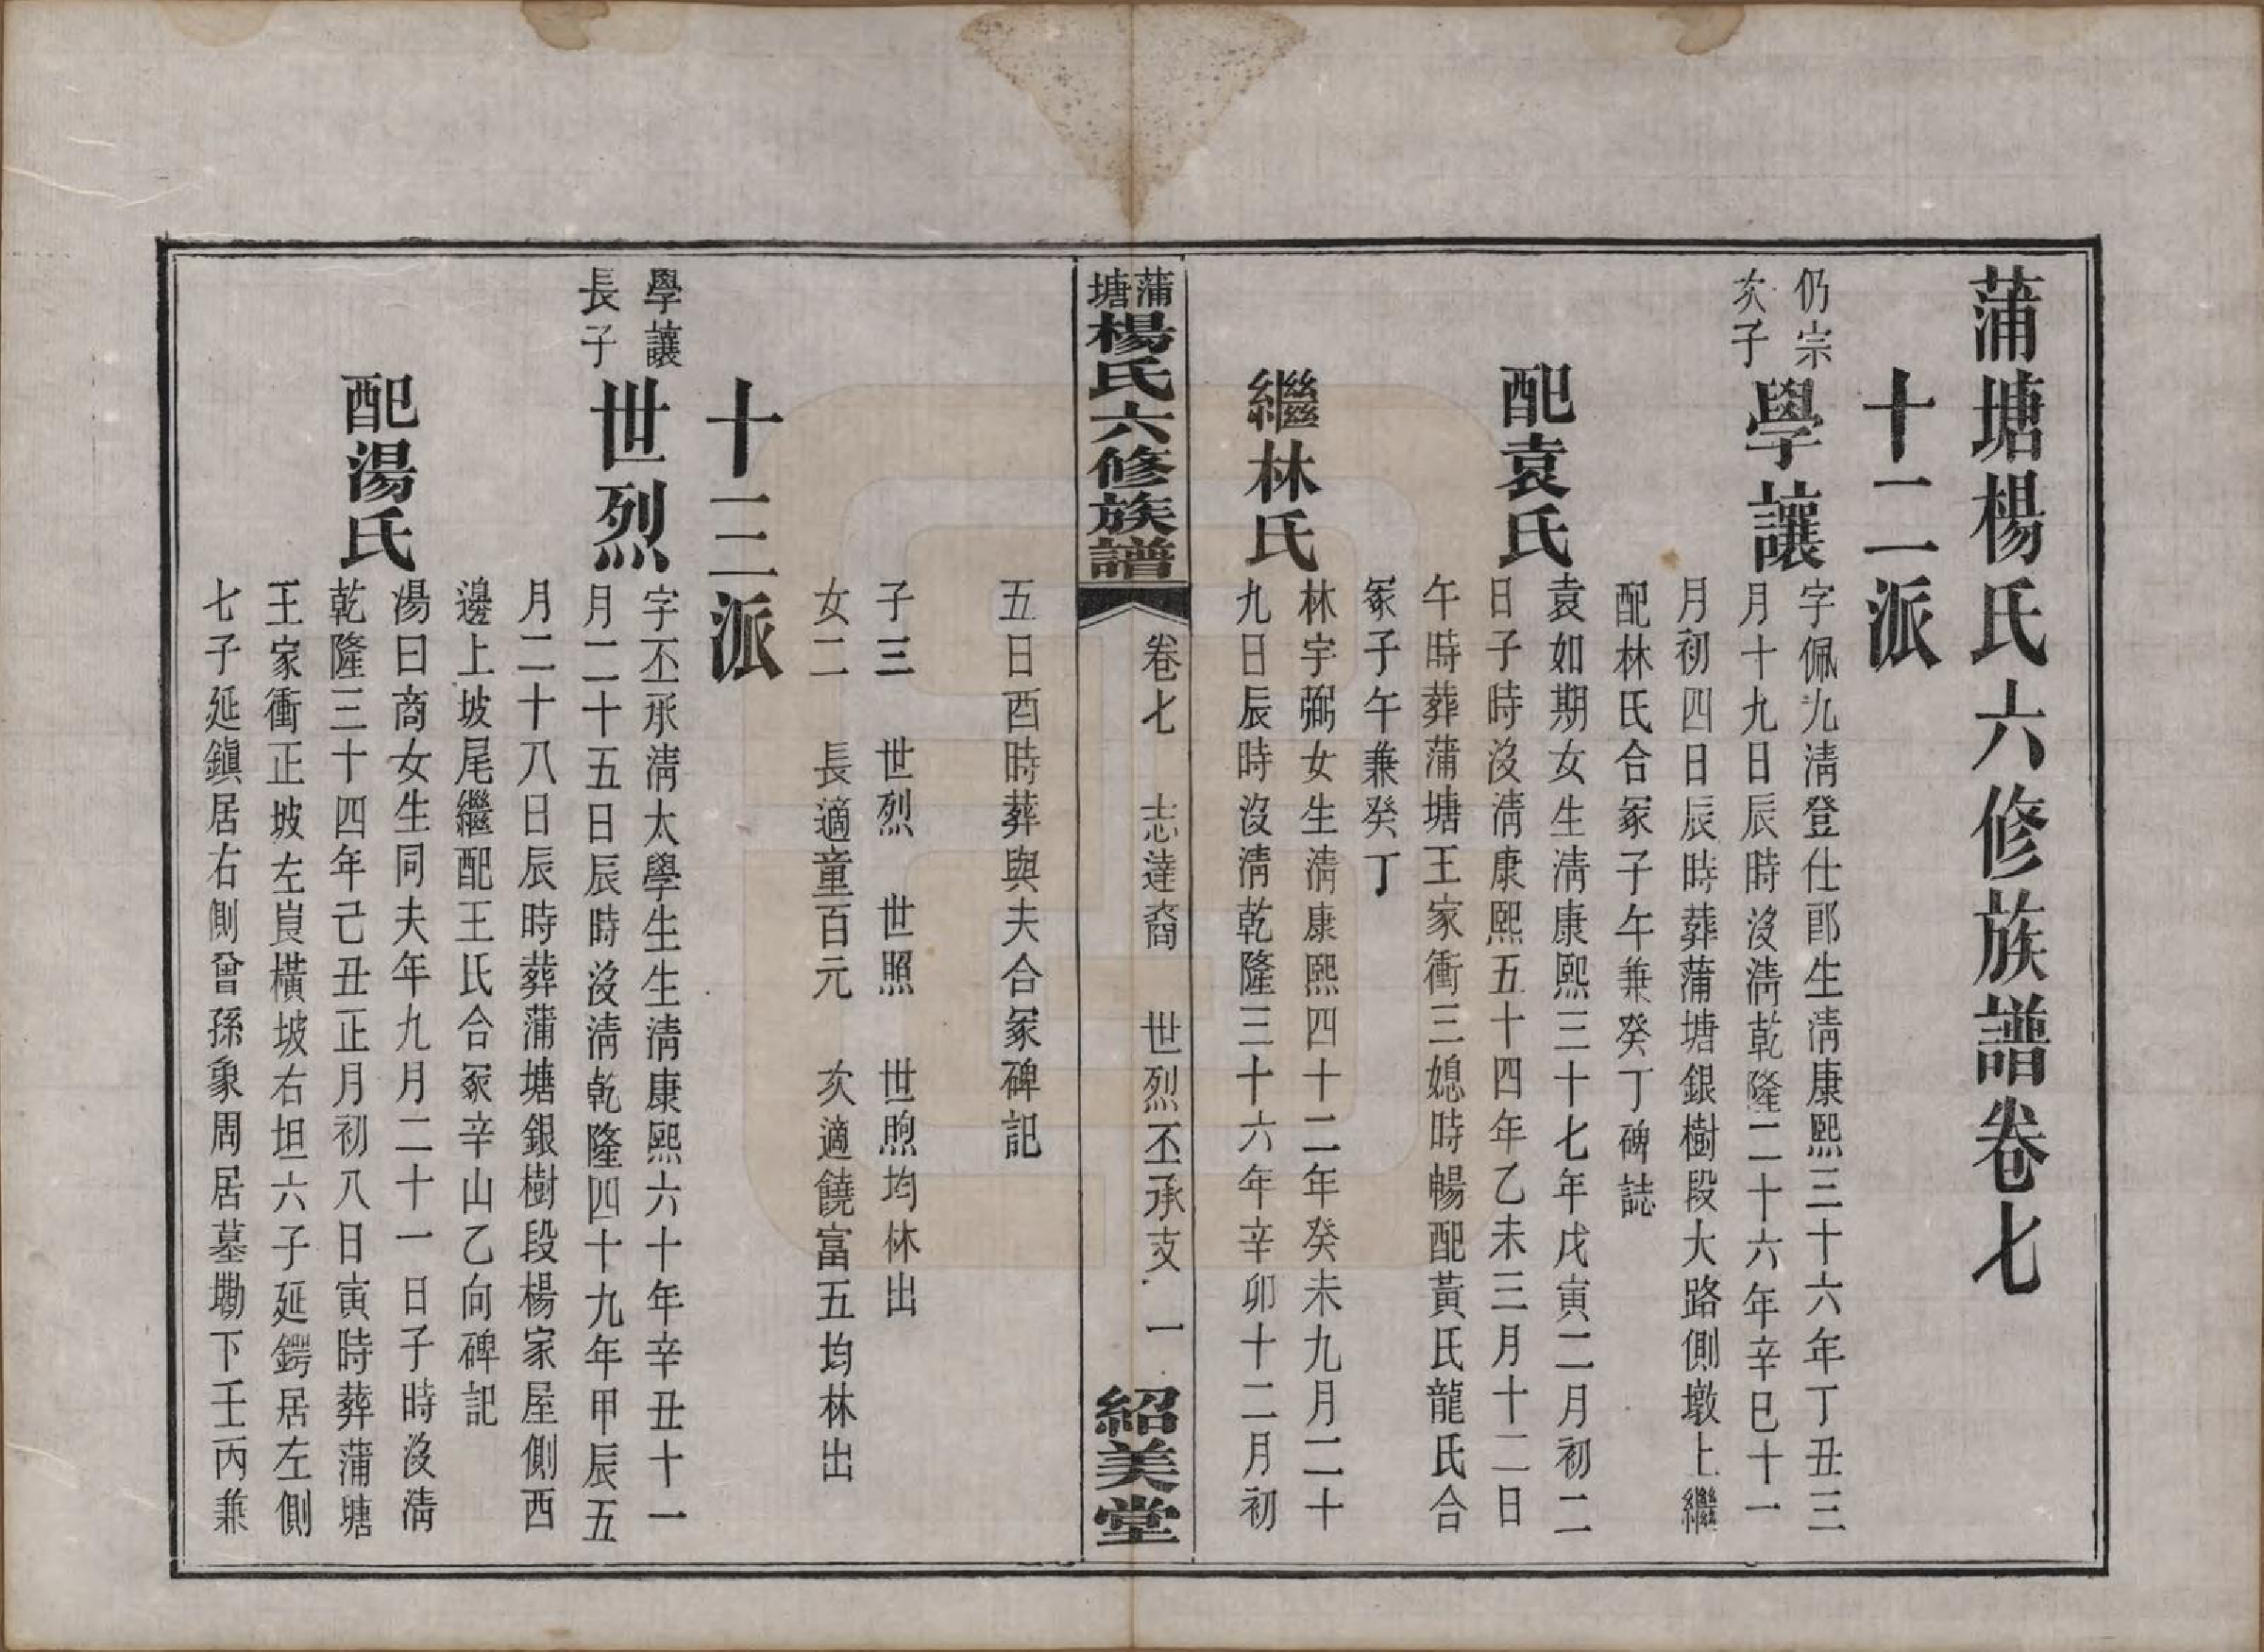 蒲塘楊氏六修族譜卷七
十二派
仍宗
次子
學讓
字佩九淸登仕郎生淸康熙三十六年丁丑三
月十九日辰時沒淸乾隆二十六年辛巳十一
月初四日辰時葬蒲塘銀樹段大路側墩上繼
配林氏合冢子午兼癸丁碑誌
配袁氏
袁如期女生淸康熙三十七年戊寅二月初二
日子時沒淸康熙五十四年乙未三月十二日
午時葬蒲塘王家衝三媳時暢配黃氏龍氏合
冢子午兼癸丁
繼林氏
林宇弼女生淸康熙四十二年癸未九月二十
九日辰時沒淸乾隆三十六年辛卯十二月初
蒲塘楊氏六修族譜
卷七 志達裔 世烈丕承支 一
紹美堂
五日酉時葬與夫合冢碑記
子三 世烈 世照 世煦均林出
女二 長適童百元 次適饒富五均林出
十三派
學讓
長子
世烈
字丕承淸太學生生淸康熙六十年辛丑十一
月二十五日辰時沒淸乾隆四十九年甲辰五
月二十八日辰時葬蒲塘銀樹段楊家屋側西
邊上坡尾繼配王氏合冢辛山乙向碑記
配湯氏
湯曰商女生同夫年九月二十一日子時沒淸
乾隆三十四年己丑正月初八日寅時葬蒲塘
王家衝正坡左崀橫坡右坦六子延鍔居左側
七子延鎭居右側曾孫象周居墓墈下壬丙兼